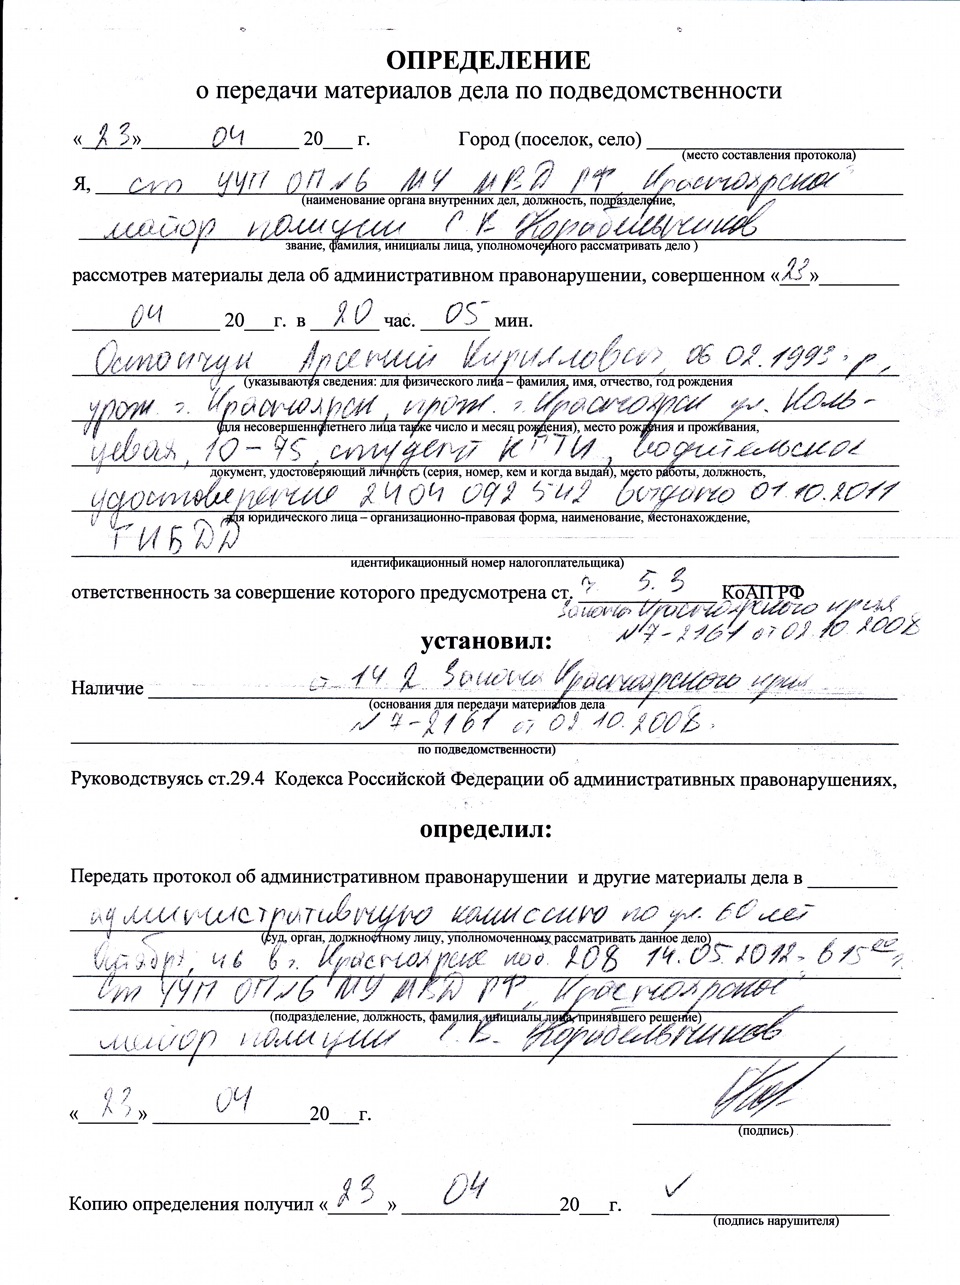 ОПРЕДЕЛЕНИЕ
о передачи материалов дела по подведомственности
«23» 04 20___ г. Город (поселок, село)
(место составления протокола)
Я, ст УУП ОП №6 МУ МВД РФ „Красноярское"
(наименование органа внутренних дел, должность, подразделение,
майор полиции С.В. Корабельников
звание, фамилия, инициалы лица, уполномоченного рассматривать дело )
рассмотрев материалы дела об административном правонарушении, совершенном «23»
04 20___г. в 20 час. 05 мин.
Остапчук Арсений Кириллович, 06 02.1993 г р,
(указываются сведения: для физического лица – фамилия, имя, отчество, год рождения
урож. г. Красноярск, прож. г. Красноярск ул. Коль-
(для несовершеннолетнего лица также число и месяц рождения), место рождения и проживания,
цевая, 10-75, студент КГТИ, водительское
документ, удостоверяющий личность (серия, номер, кем и когда выдан), место работы, должность,
удостоверение 2404 092542 выдано 01.10.2011
для юридического лица – организационно-правовая форма, наименование, местонахождение,
ГИБДД
идентификационный номер налогоплательщика)
ответственность за совершение которого предусмотрена ст. 5.3 КоАП РФ
Закона Красноярского края
№7-2161 от 02.10.2008
установил:
Наличие ст 14 2 Закона Красноярского края
(основания для передачи материалов дела
№7-2161 от 02 10.2008.
по подведомственности)
Руководствуясь ст.29.4 Кодекса Российской Федерации об административных правонарушениях,
определил:
Передать протокол об административном правонарушении и другие материалы дела в
административную комиссию по ул. 60 лет
(суд, орган, должностному лицу, уполномоченному рассматривать данное дело)
Октября, 46 в г. Красноярске каб. 208 14.05.2012 в 15 00
ст УУП ОП №6 МУ МВД РФ „Красноярское"
(подразделение, должность, фамилия, инициалы лица, принявшего решение)
майор полиции С.В. Корабельников
«23» 04 20___г.
(подпись)
Копию определения получил «23» 04 20___г.
(подпись нарушителя)